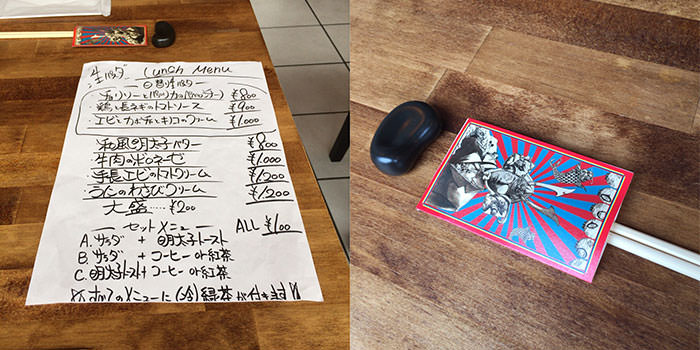 生パスタ Lunch Menu
日替り生パスタ
チョリソーと ¥800
鶏と長ネギのトマトソース ¥900
エビとカボチャとキノコのクリーム ¥1,000
和風明太子バター ¥800
牛肉のボロネーゼ ¥1,000
手長エビのトマトクリーム ¥1,200
うにのわさびクリーム ¥1,200
大盛……¥200
セットメニュー ALL ¥100
A. サラダ + 明太子トースト
B. サラダ + コーヒー or 紅茶
C. 明太子トースト + コーヒー or 紅茶
※ 全てのメニューに(冷)緑茶が付きます!!